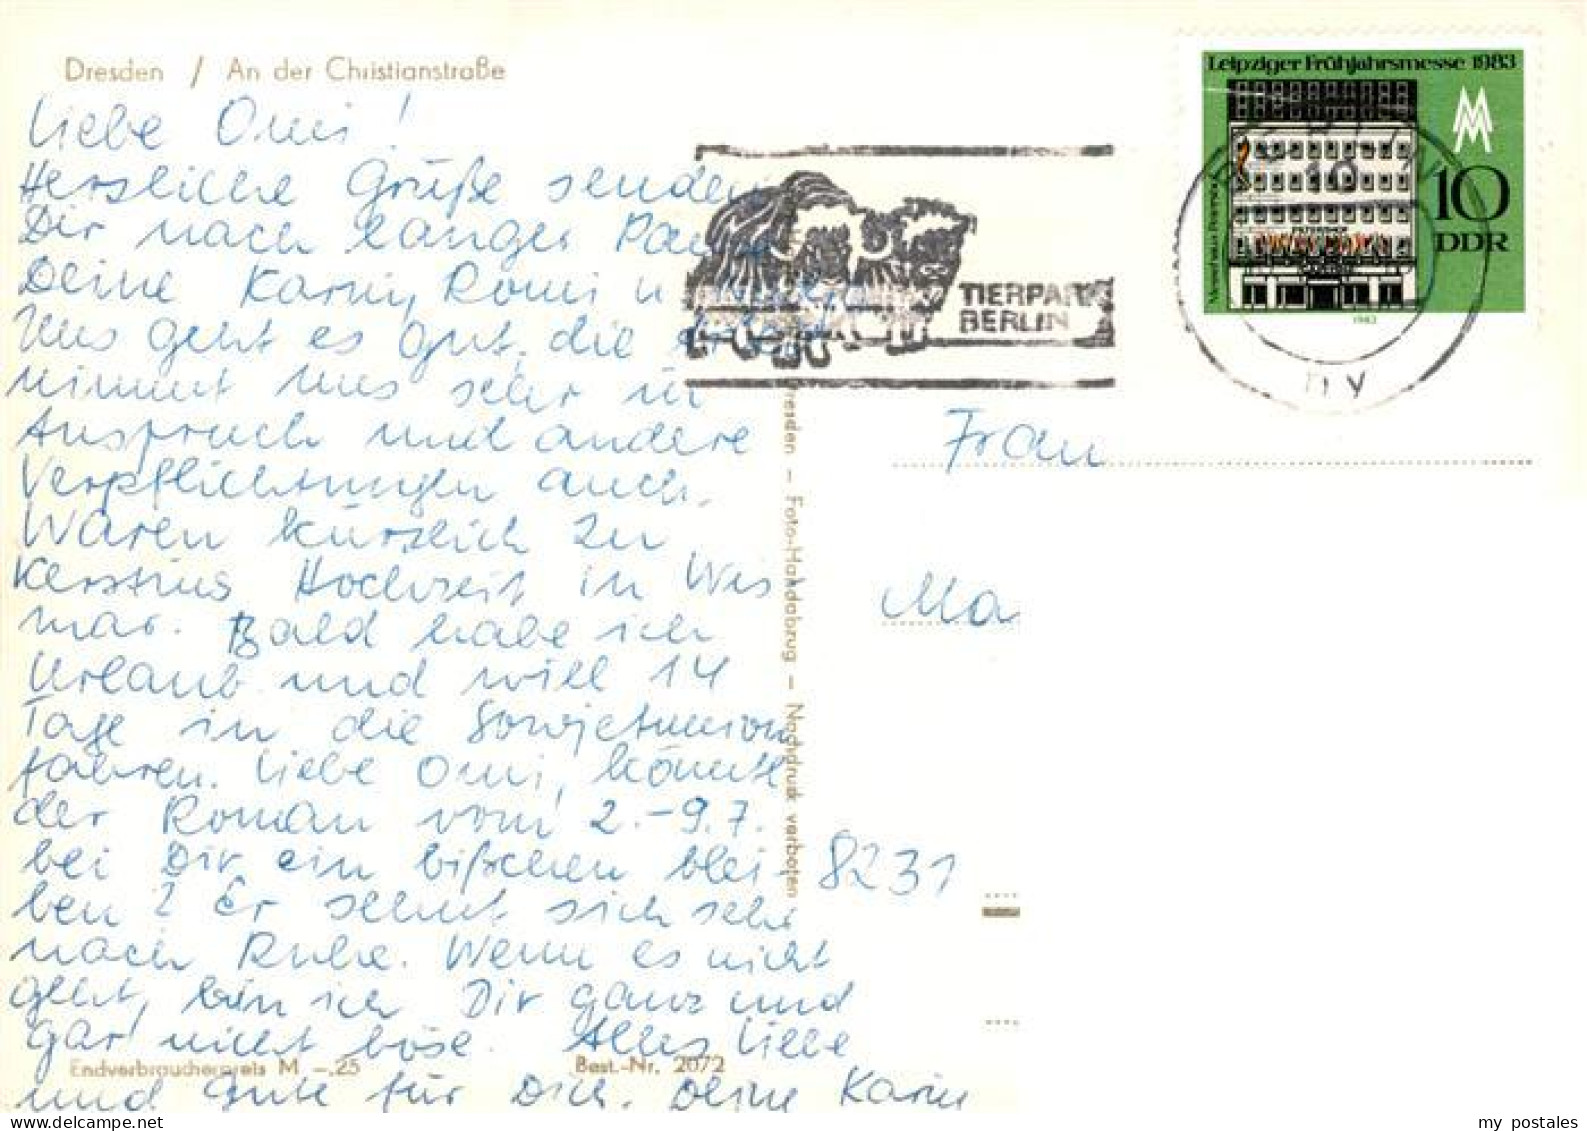 Dresden / An der Christianstraße
Liebe Omi!
Herzliche Grüße senden
Dir nach langer Pause
Deine Karin, Romi u
Uns geht es gut, die
nimmt uns sehr in
Anspruch und andere
Verpflichtungen auch.
Waren kürzlich zu
Kerstins Hochzeit in Wis
mar. Bald habe ich
Urlaub und will 14
Tage in die Sowjetunion
fahren. Liebe Omi, könnte
der Roman vom 2.-9.7.
bei Dir ein bißchen blei-
ben? Er sehnt sich sehr
nach Ruhe. Wenn es nicht
geht, bin ich Dir ganz und
gar nicht böse. Alles Liebe
und Gute für Dich. Deine Karin
Endverbraucherpreis M -.25 Best.-Nr. 2072
Dresden — Foto-Handabzug — Nachdruck verboten
TIERPARK
BERLIN
Leipziger Frühjahrsmesse 1983
MM
10
DDR
1983
ny
Frau
Ma
8231
my postales